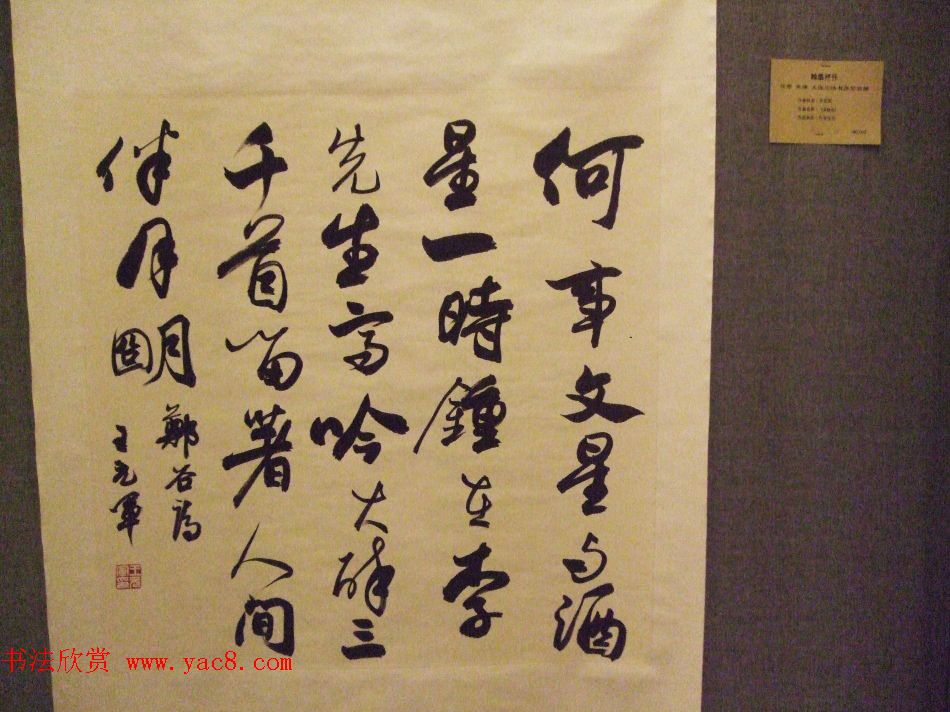 何事文星与酒
星一時鍾在李
先生高吟大醉三
千首留著人間
伴月朙
鄭谷詩
王元軍
书法欣赏 www.yac8.com